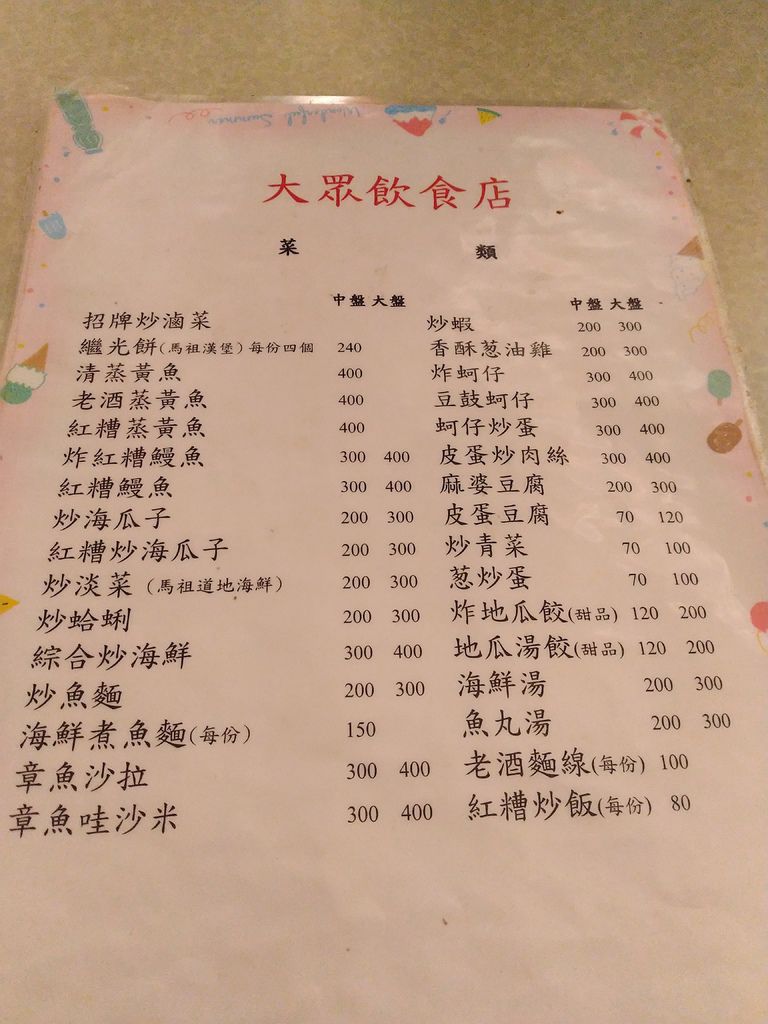 Wonderful Summer
大眾飲食店
菜 類
中盤 大盤
招牌炒滷菜
繼光餅(馬祖漢堡)每份四個 240
清蒸黃魚 400
老酒蒸黃魚 400
紅糟蒸黃魚 400
炸紅糟鰻魚 300 400
紅糟鰻魚 300 400
炒海瓜子 200 300
紅糟炒海瓜子 200 300
炒淡菜 (馬祖道地海鮮) 200 300
炒蛤蜊 200 300
綜合炒海鮮 300 400
炒魚麵 200 300
海鮮煮魚麵(每份) 150
章魚沙拉 300 400
章魚哇沙米 300 400
中盤 大盤
炒蝦 200 300
香酥葱油雞 200 300
炸蚵仔 300 400
豆鼓蚵仔 300 400
蚵仔炒蛋 300 400
皮蛋炒肉絲 300 400
麻婆豆腐 200 300
皮蛋豆腐 70 120
炒青菜 70 100
葱炒蛋 70 100
炸地瓜餃(甜品) 120 200
地瓜湯餃(甜品) 120 200
海鮮湯 200 300
魚丸湯 200 300
老酒麵線(每份) 100
紅糟炒飯(每份) 80